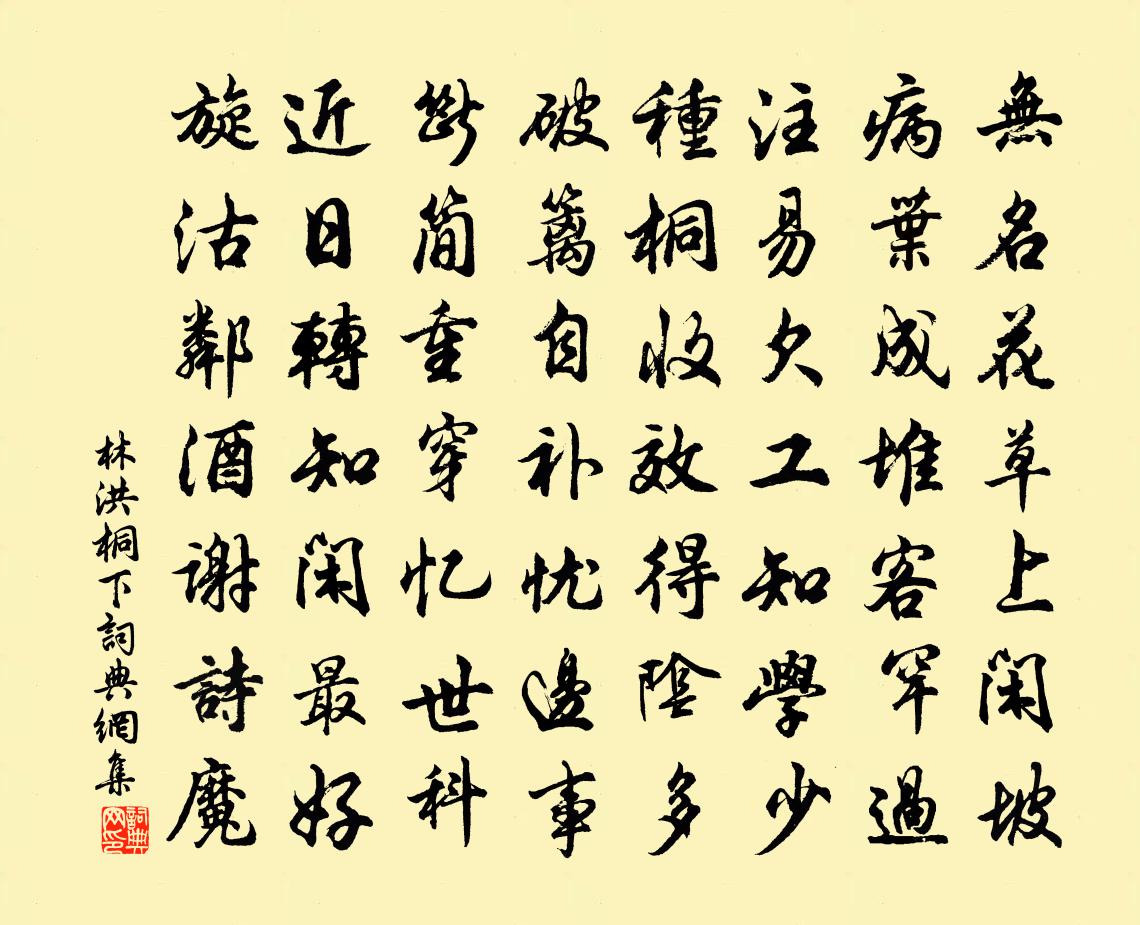 無名花草上闲坡
病葉成堆客罕過
注易欠工知學少
種桐收效得陰多
破籬自补忧邊事
断简重穿忆世科
近日轉知闲最好
旋沽鄰酒谢詩魔
林洪桐下詞典網集
詞典网印